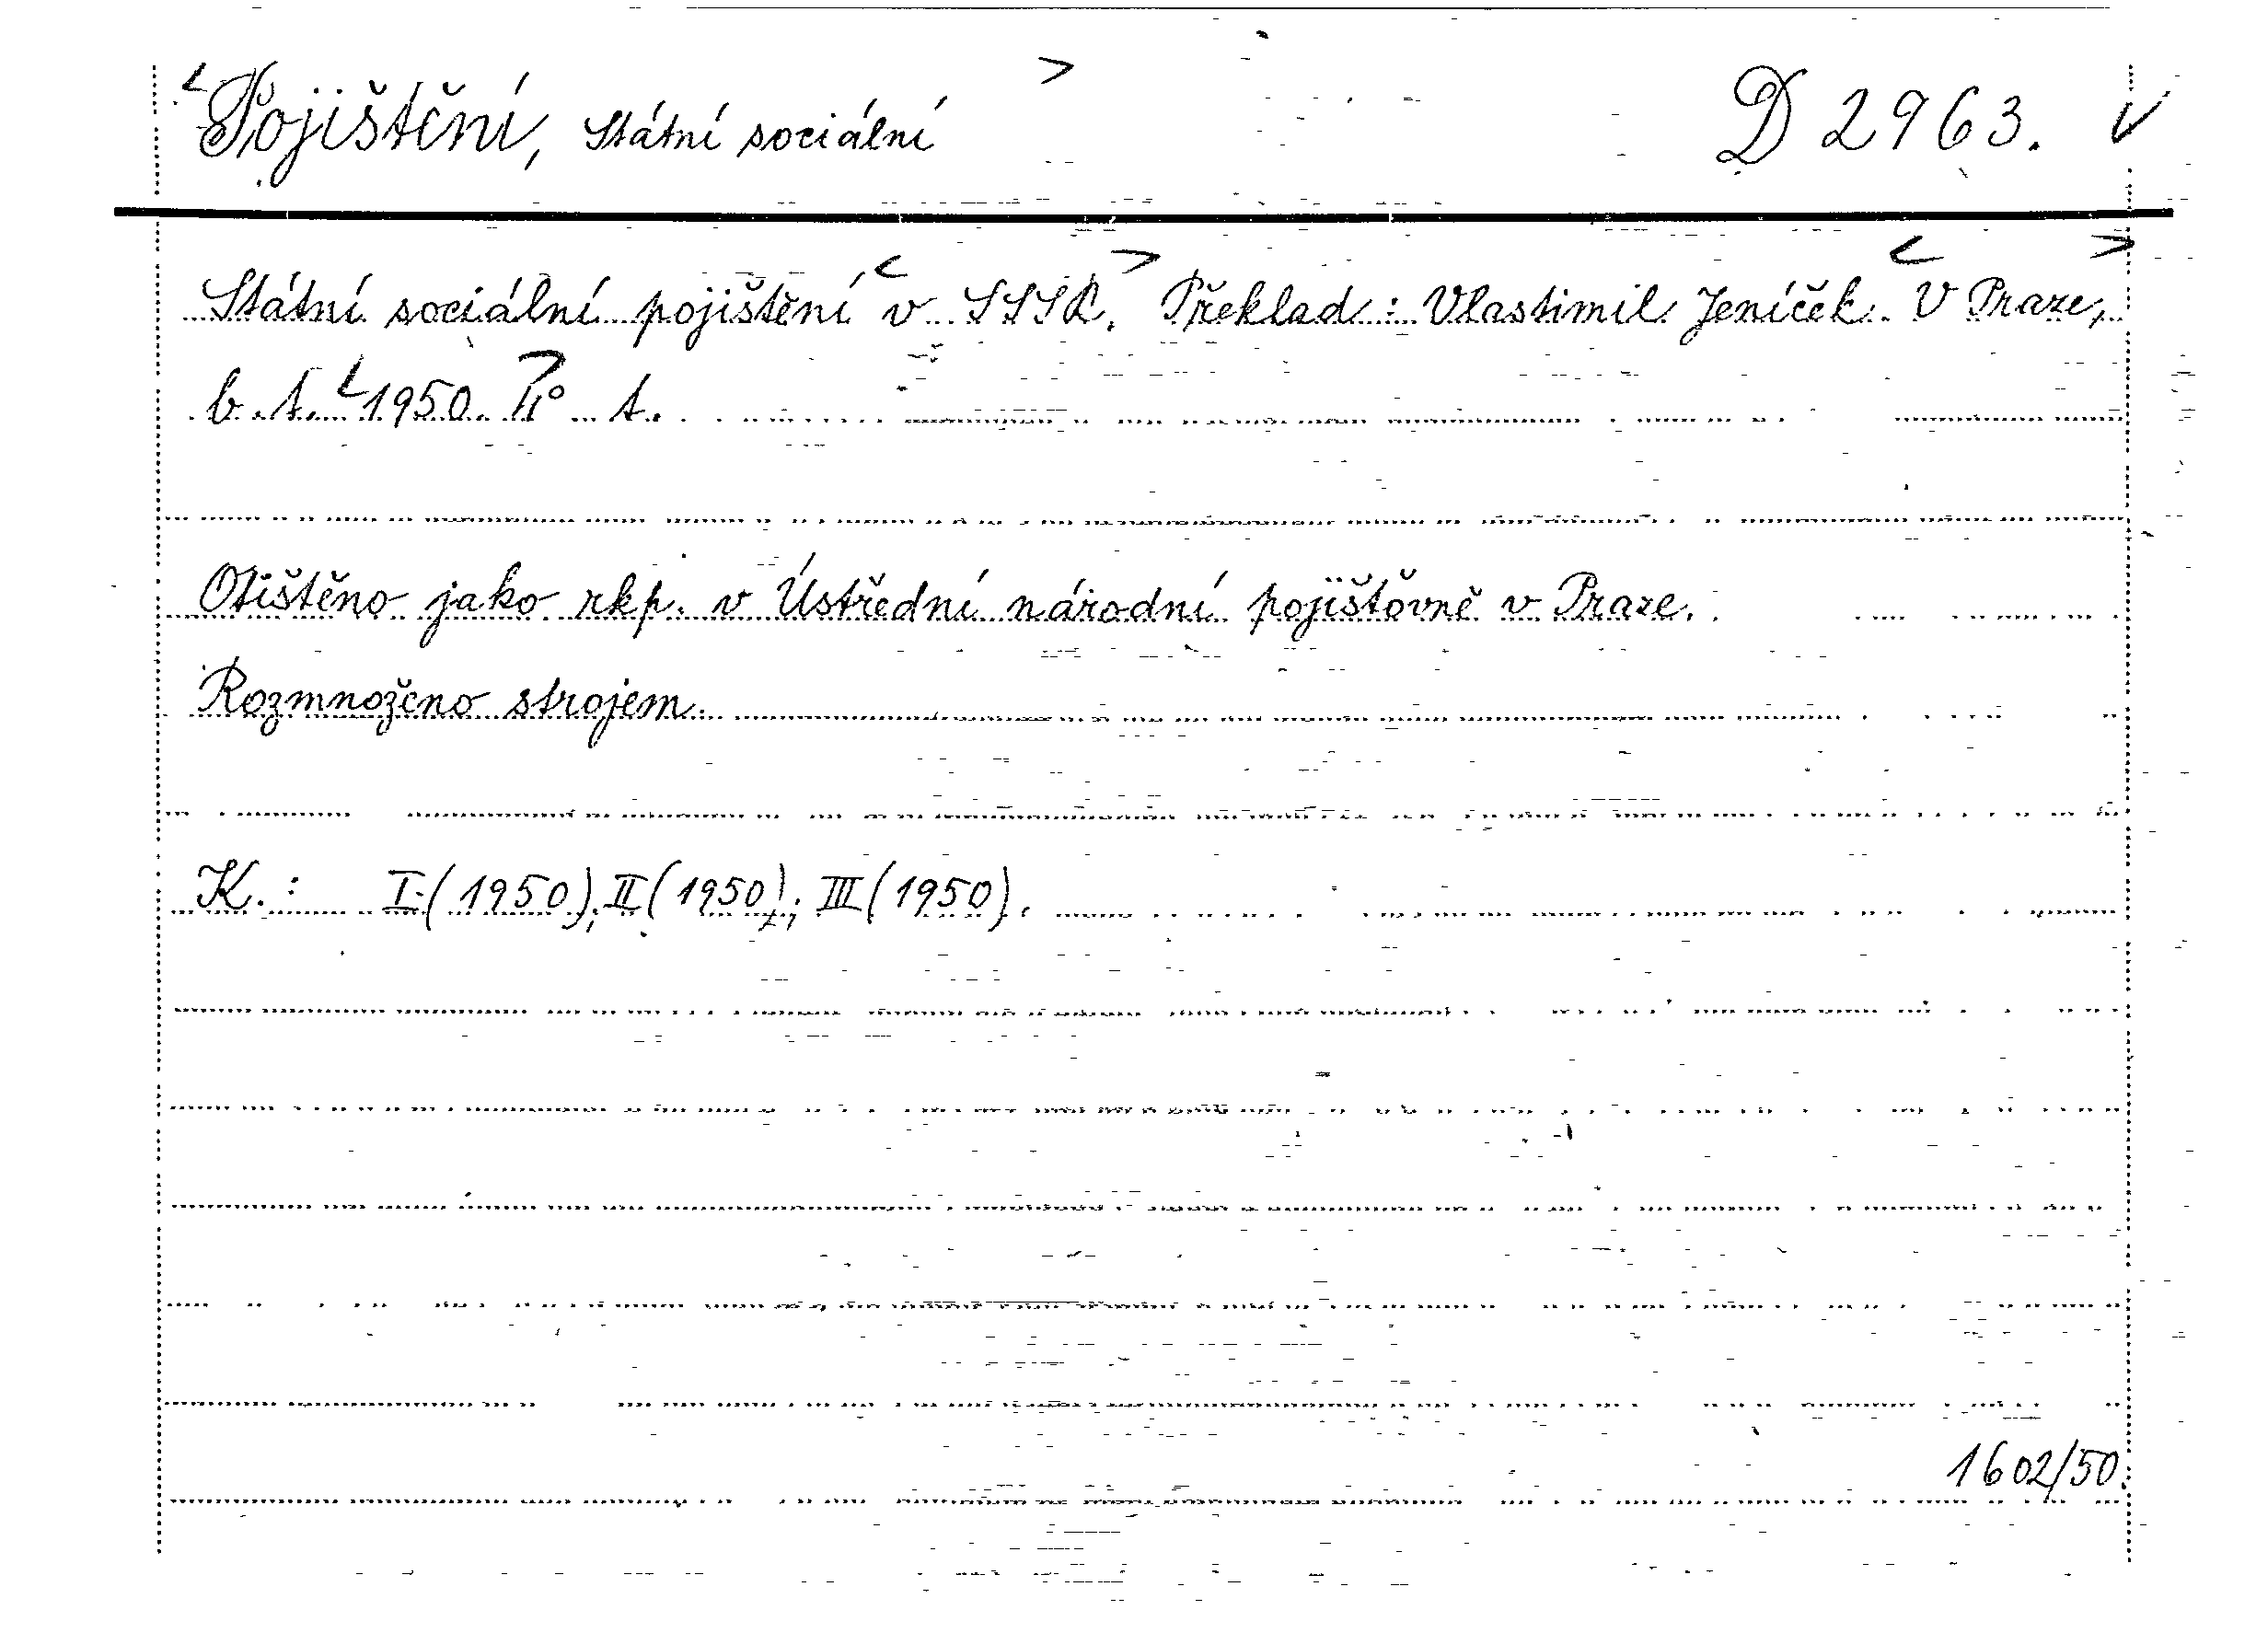 <Pojištění, státní sociální> D 2963. ✓
Státní sociální pojištění <v SSSR.> Překlad: Vlastimil Jeníček. <V Praze,>
b. t. <1950. 4°> t.
Otištěno jako rkp. v Ústřední národní pojišťovně v Praze.
Rozmnoženo strojem.
K.: I (1950); II (1950); III (1950).
1602/50.